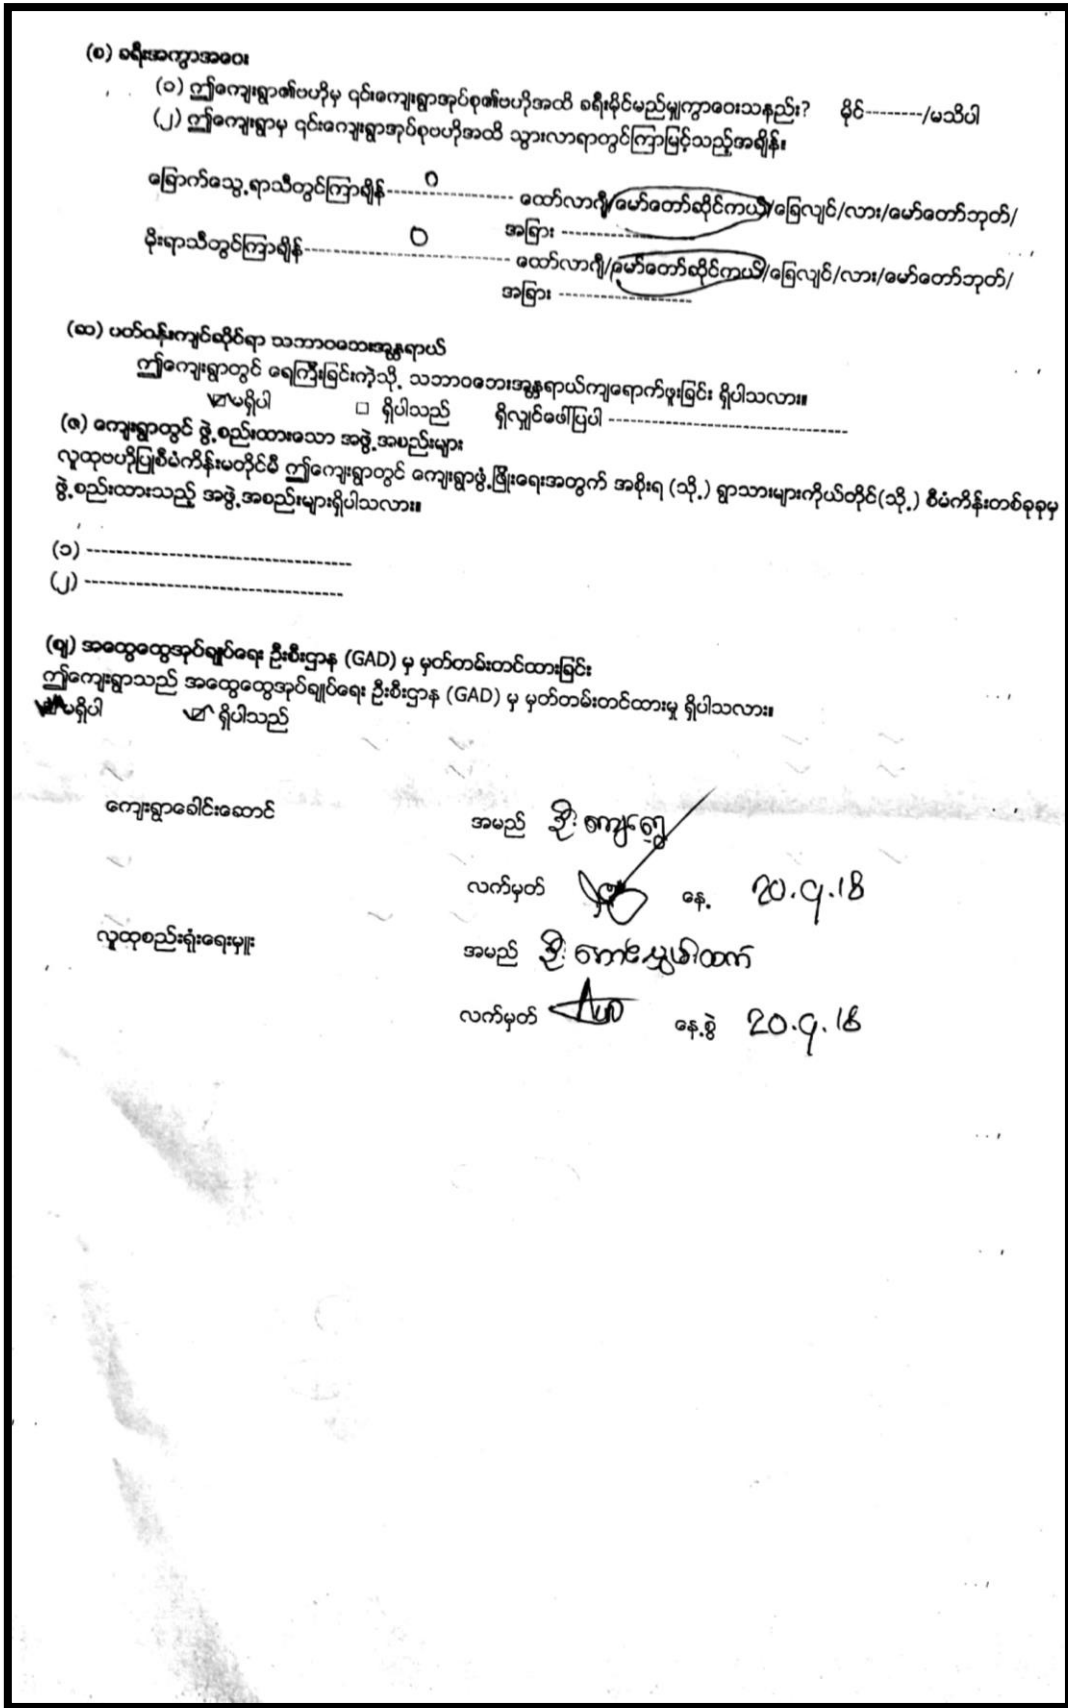 (စ) ခရီးအကွာအဝေး
(၁) ဤကျေးရွာ၏ဗဟိုမှ ၎င်းကျေးရွာအုပ်စု၏ဗဟိုအထိ ခရီးမိုင်မည်မျှကွာဝေးသနည်း? မိုင်--------/မသိပါ
(၂) ဤကျေးရွာမှ ၎င်းကျေးရွာအုပ်စုဗဟိုအထိ သွားလာရာတွင်ကြာမြင့်သည့်အချိန်။
ခြောက်သွေ့ရာသီတွင်ကြာချိန်--------0---------- ထော်လာဂျီ/မော်တော်ဆိုင်ကယ်/ခြေလျင်/လား/မော်တော်ဘုတ်/
အခြား ------------------
မိုးရာသီတွင်ကြာချိန်---------------0------------- ထော်လာဂျီ/မော်တော်ဆိုင်ကယ်/ခြေလျင်/လား/မော်တော်ဘုတ်/
အခြား ------------------
(ဆ) ပတ်ဝန်းကျင်ဆိုင်ရာ သဘာဝဘေးအန္တရာယ်
ဤကျေးရွာတွင် ရေကြီးခြင်းကဲ့သို့ သဘာဝဘေးအန္တရာယ်ကျရောက်ဖူးခြင်း ရှိပါသလား။
☑ မရှိပါ □ ရှိပါသည် ရှိလျှင်ဖေါ်ပြပါ --------------------------------
(ဇ) ကျေးရွာတွင် ဖွဲ့စည်းထားသော အဖွဲ့အစည်းများ
လူထုဗဟိုပြုစီမံကိန်းမတိုင်မီ ဤကျေးရွာတွင် ကျေးရွာဖွံ့ဖြိုးရေးအတွက် အစိုးရ (သို့) ရွာသားများကိုယ်တိုင်(သို့) စီမံကိန်းတစ်ခုခုမှ
ဖွဲ့စည်းထားသည့် အဖွဲ့အစည်းများရှိပါသလား။
(၁) -----------------------------------
(၂) -----------------------------------
(ဈ) အထွေထွေအုပ်ချုပ်ရေး ဦးစီးဌာန (GAD) မှ မှတ်တမ်းတင်ထားခြင်း
ဤကျေးရွာသည် အထွေထွေအုပ်ချုပ်ရေး ဦးစီးဌာန (GAD) မှ မှတ်တမ်းတင်ထားမှု ရှိပါသလား။
မရှိပါ ☑ ရှိပါသည်
ကျေးရွာခေါင်းဆောင် အမည် ဦး
လက်မှတ် နေ့ 20.9.18
လူထုစည်းရုံးရေးမှူး အမည် ဦး
လက်မှတ် နေ့စွဲ 20.9.18